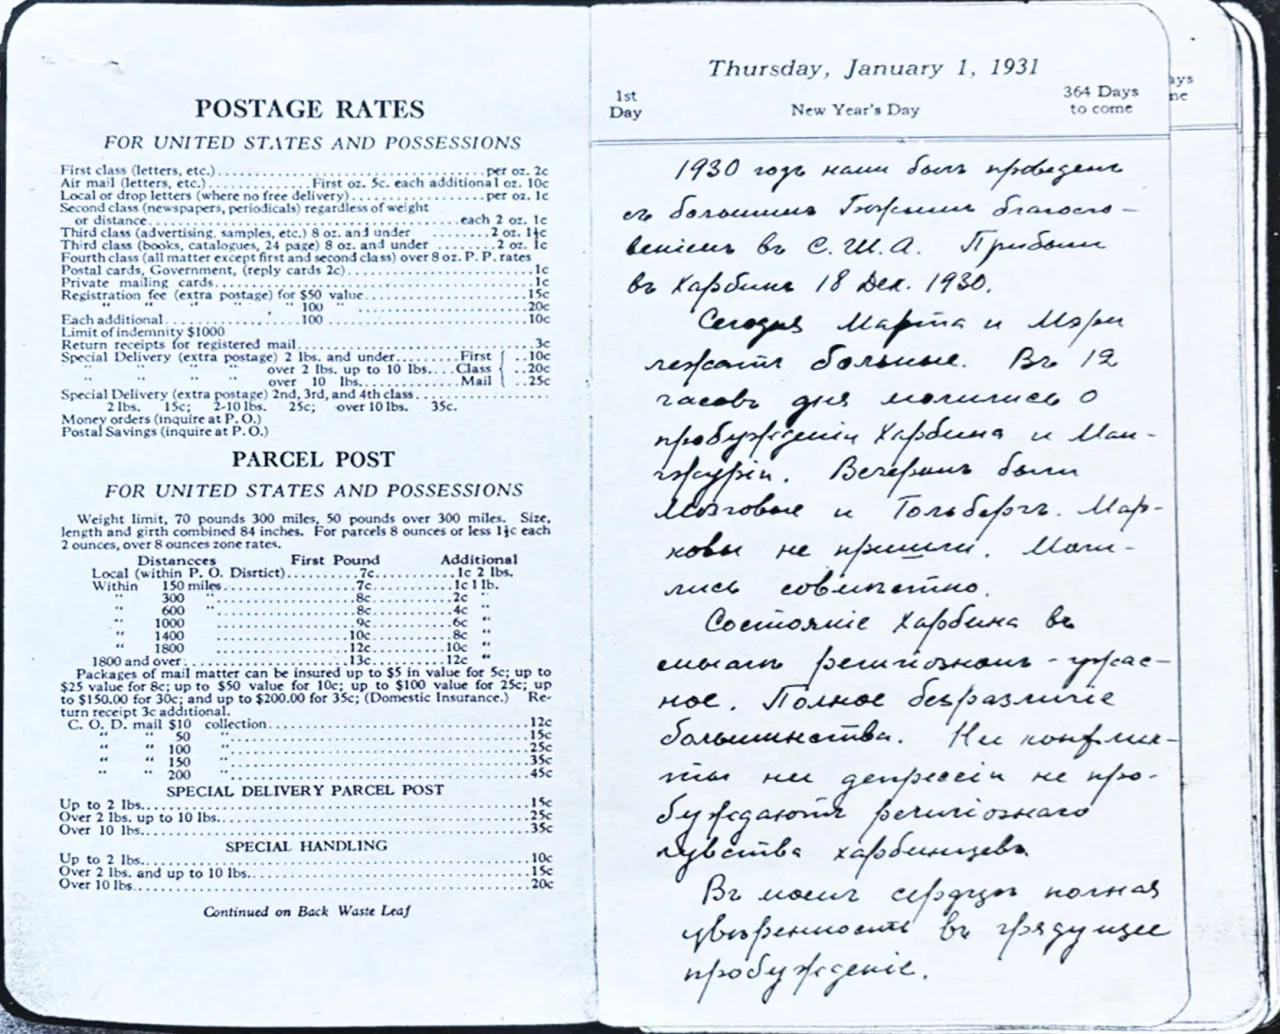 POSTAGE RATES
FOR UNITED STATES AND POSSESSIONS
First class (letters, etc.)........................................per oz. 2c
Air mail (letters, etc.)................First oz. 5c. each additional oz. 10c
Local or drop letters (where no free delivery)....................per oz. 1c
Second class (newspapers, periodicals) regardless of weight
or distance..................................................each 2 oz. 1c
Third class (advertising, samples, etc.) 8 oz. and under ........2 oz. 1½c
Third class (books, catalogues, 24 page) 8 oz. and under ........2 oz. 1c
Fourth class (all matter except first and second class) over 8 oz. P. P. rates
Postal cards, Government, (reply cards 2c)...........................1c
Private mailing cards................................................1c
Registration fee (extra postage) for $50 value......................15c
" " " " " 100 " ......................20c
Each additional.....................100 "......................10c
Limit of indemnity $1000
Return receipts for registered mail..................................3c
Special Delivery (extra postage) 2 lbs. and under........First ..10c
" " " " over 2 lbs. up to 10 lbs....Class ..20c
over 10 lbs..............Mail ..25c
Special Delivery (extra postage) 2nd, 3rd, and 4th class..................
2 lbs. 15c; 2-10 lbs. 25c; over 10 lbs. 35c.
Money orders (inquire at P. O.)
Postal Savings (inquire at P. O.)
PARCEL POST
FOR UNITED STATES AND POSSESSIONS
Weight limit, 70 pounds 300 miles, 50 pounds over 300 miles. Size,
length and girth combined 84 inches. For parcels 8 ounces or less 1½c each
2 ounces, over 8 ounces zone rates.
Distancces First Pound Additional
Local (within P. O. Disrtict)..........7c............1c 2 lbs.
Within 150 miles....................7c............1c 1 lb.
" 300 " ....................8c............2c "
" 600 " ....................8c............4c "
" 1000 ....................9c............6c "
" 1400 ....................10c............8c "
" 1800 ....................12c............10c "
1800 and over......................13c............12c "
Packages of mail matter can be insured up to $5 in value for 5c; up to
$25 value for 8c; up to $50 value for 10c; up to $100 value for 25c; up
to $150.00 for 30c; and up to $200.00 for 35c; (Domestic Insurance.) Re-
turn receipt 3c additional.
C. O. D. mail $10 collection........................................12c
" " 50 "........................................15c
" " 100 "........................................25c
" " 150 "........................................35c
" " 200 "........................................45c
SPECIAL DELIVERY PARCEL POST
Up to 2 lbs.........................................................15c
Over 2 lbs. up to 10 lbs............................................25c
Over 10 lbs.........................................................35c
SPECIAL HANDLING
Up to 2 lbs.........................................................10c
Over 2 lbs. and up to 10 lbs........................................15c
Over 10 lbs.........................................................20c
Continued on Back Waste Leaf
Thursday, January 1, 1931
1st Day New Year's Day 364 Days to come
1930 годъ нами былъ проведенъ
съ большимъ Божьимъ благосло-
веніемъ въ С. Ш. А. Прибыли
въ Харбинъ 18 Дек. 1930.
Сегодня Марта и Мэри
лежатъ больные. Въ 12
часовъ дня молились о
пробужденіи Харбина и Ман-
журіи. Вечеромъ были
Мозговые и Гольбергъ. Мар-
ковы не пришли. Моли-
лись совмѣстно.
Состояніе Харбина въ
смыслѣ религіозномъ - ужас-
ное. Полное безразличіе
большинства. Ни конфлик-
ты ни депрессіи не про-
буждаютъ религіознаго
чувства харбинцевъ.
Въ моемъ сердцѣ полная
увѣренность въ грядущее
пробужденіе.